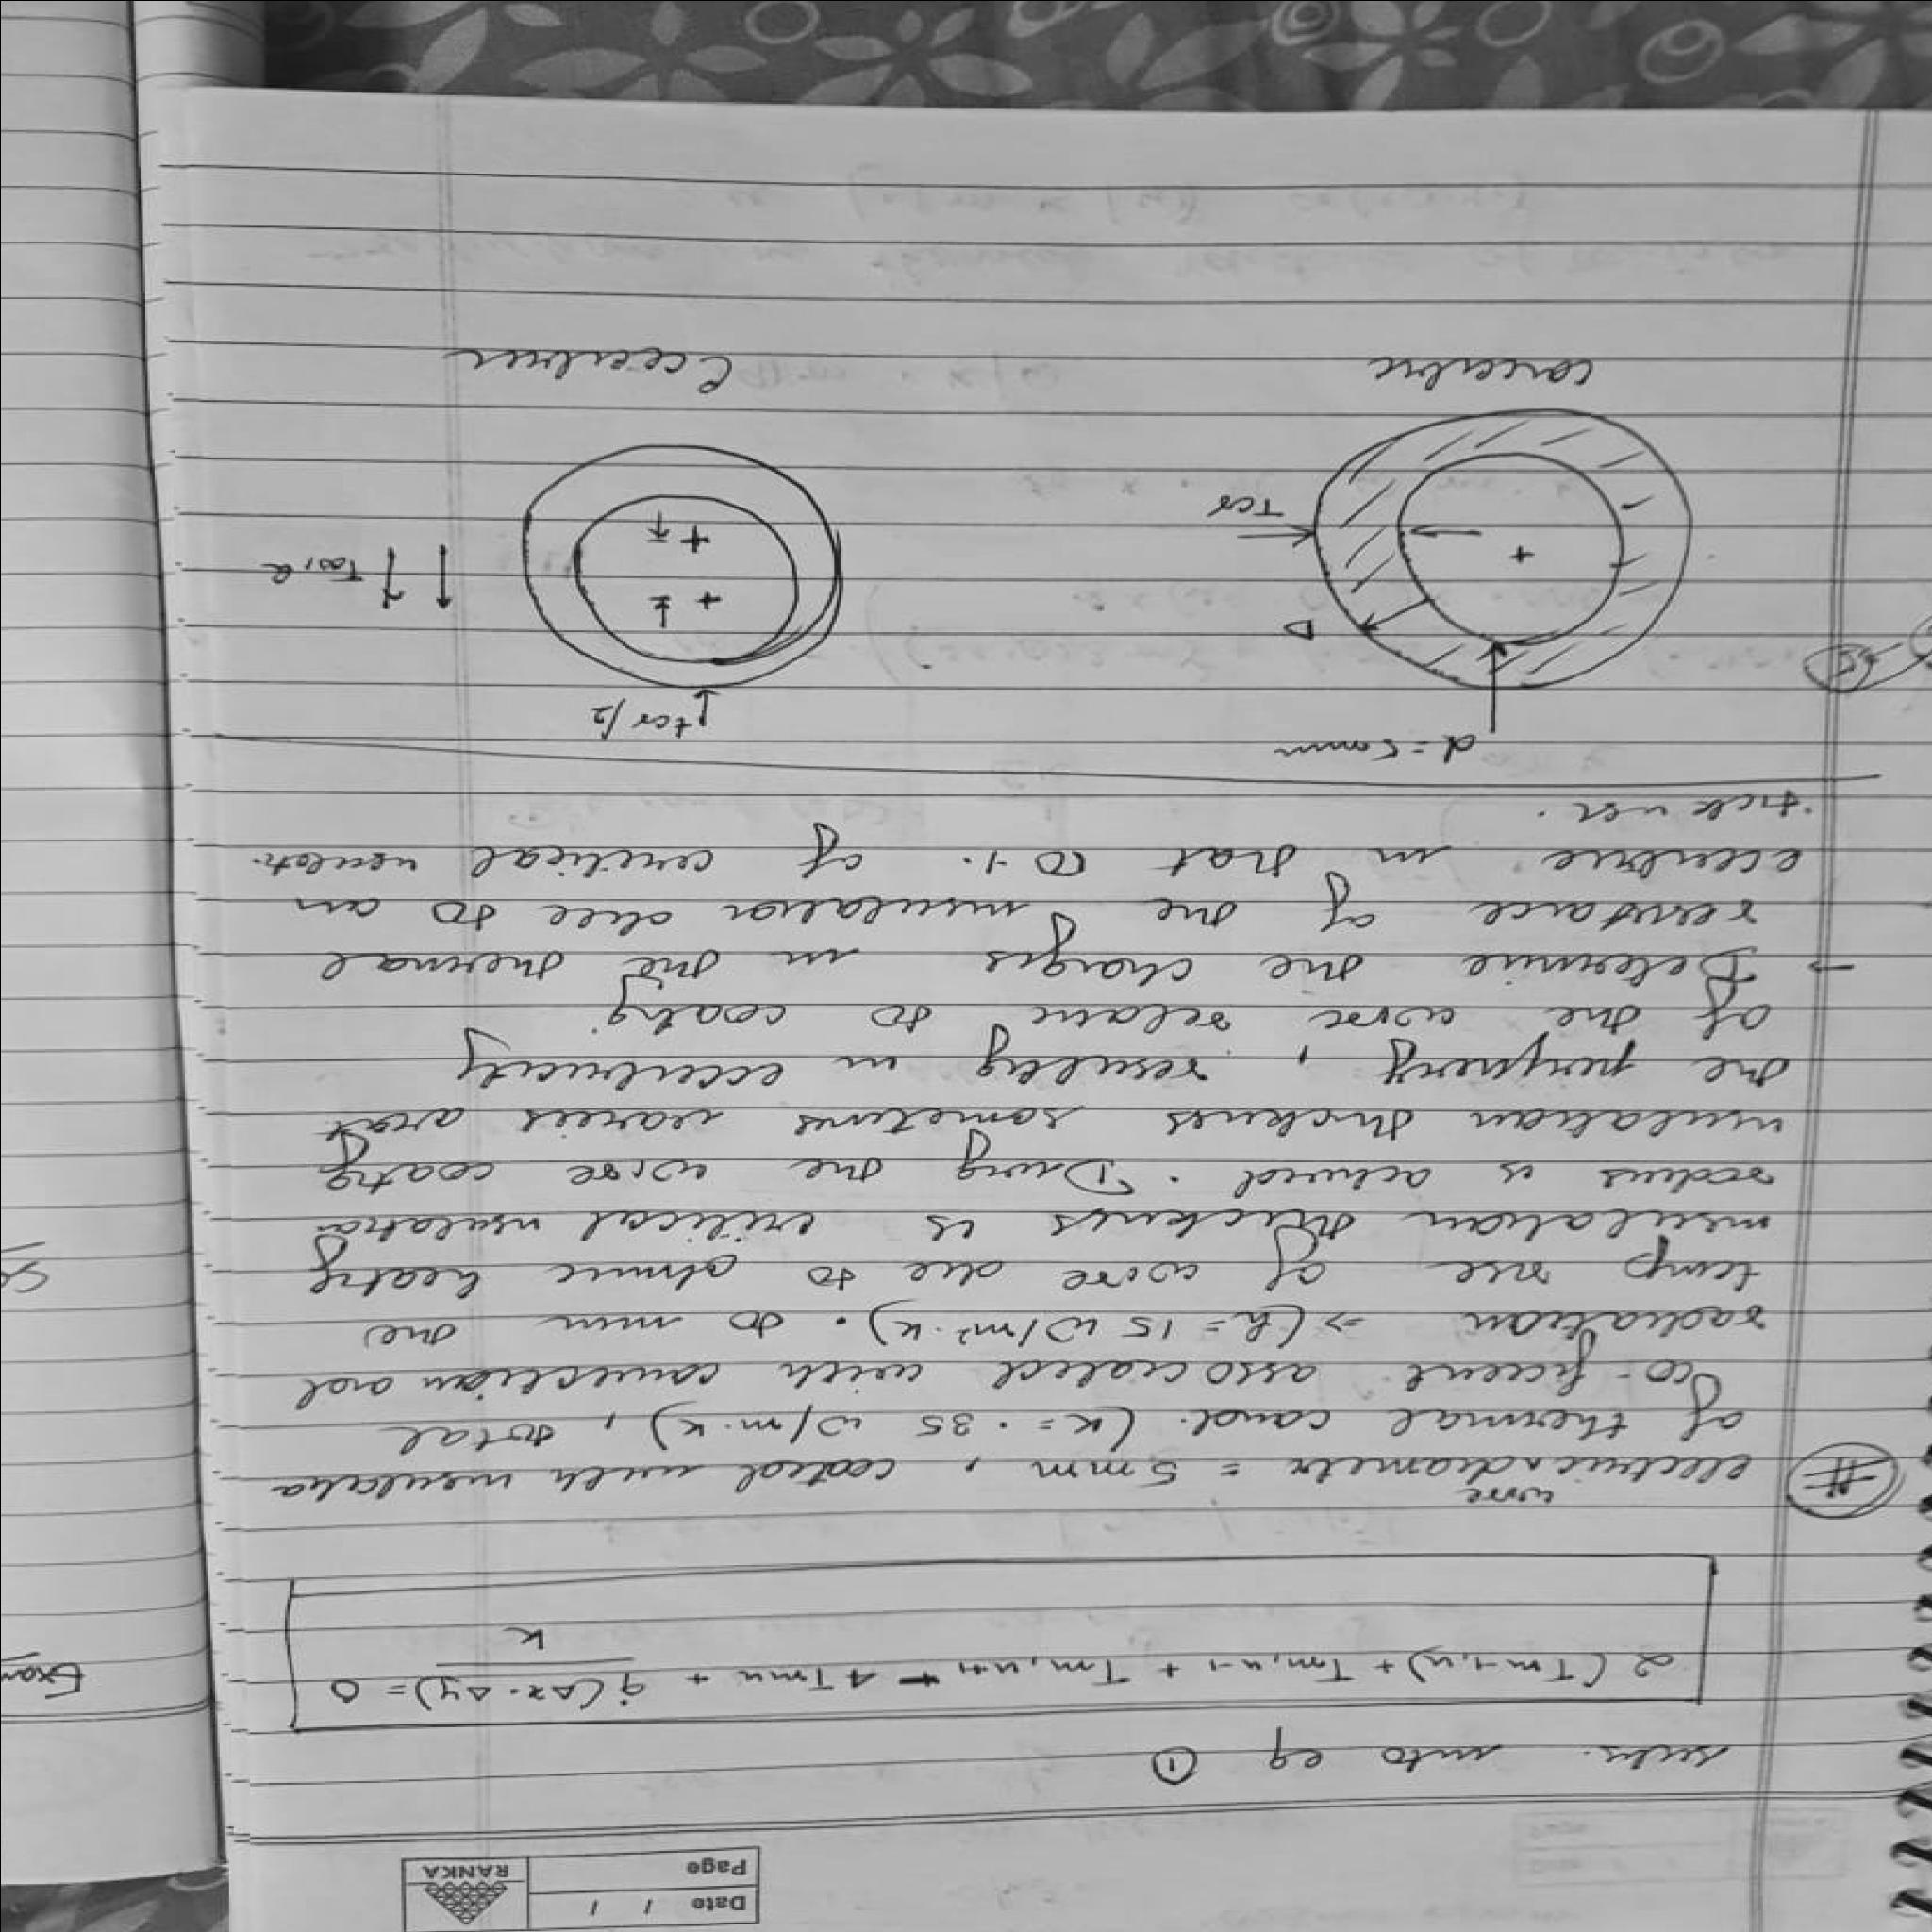 Date / /
Page
RANKA
subs. into eq ①
2 (Tm-1,n) + Tm,n-1 + Tm,n+1 - 4Tmn + q̇(Δx·Δy) = 0
K
Exam
wire
# electrical diameter = 5mm, coated with insulation
of thermal cond. (K = .35 W/m·K), total
co-ficient associated with convection and
radiation → (h = 15 W/m²·K). to min the
temp rise of wire due to ohmic heating
insulation thickness is critical insulation
radius is achived. During the wire coating
insulation thickness sometimes varies arout
the periphery, resulting in eccentricity
of the wire relative to coating
→ Determine the changes in the thermal
resistance of the insulation due to an
eccentric in that 50 %. of critical insulatn
thick ness.
d = 5mm
tcr/2
D
T∞, h
Tcr
concentric
Eccentric